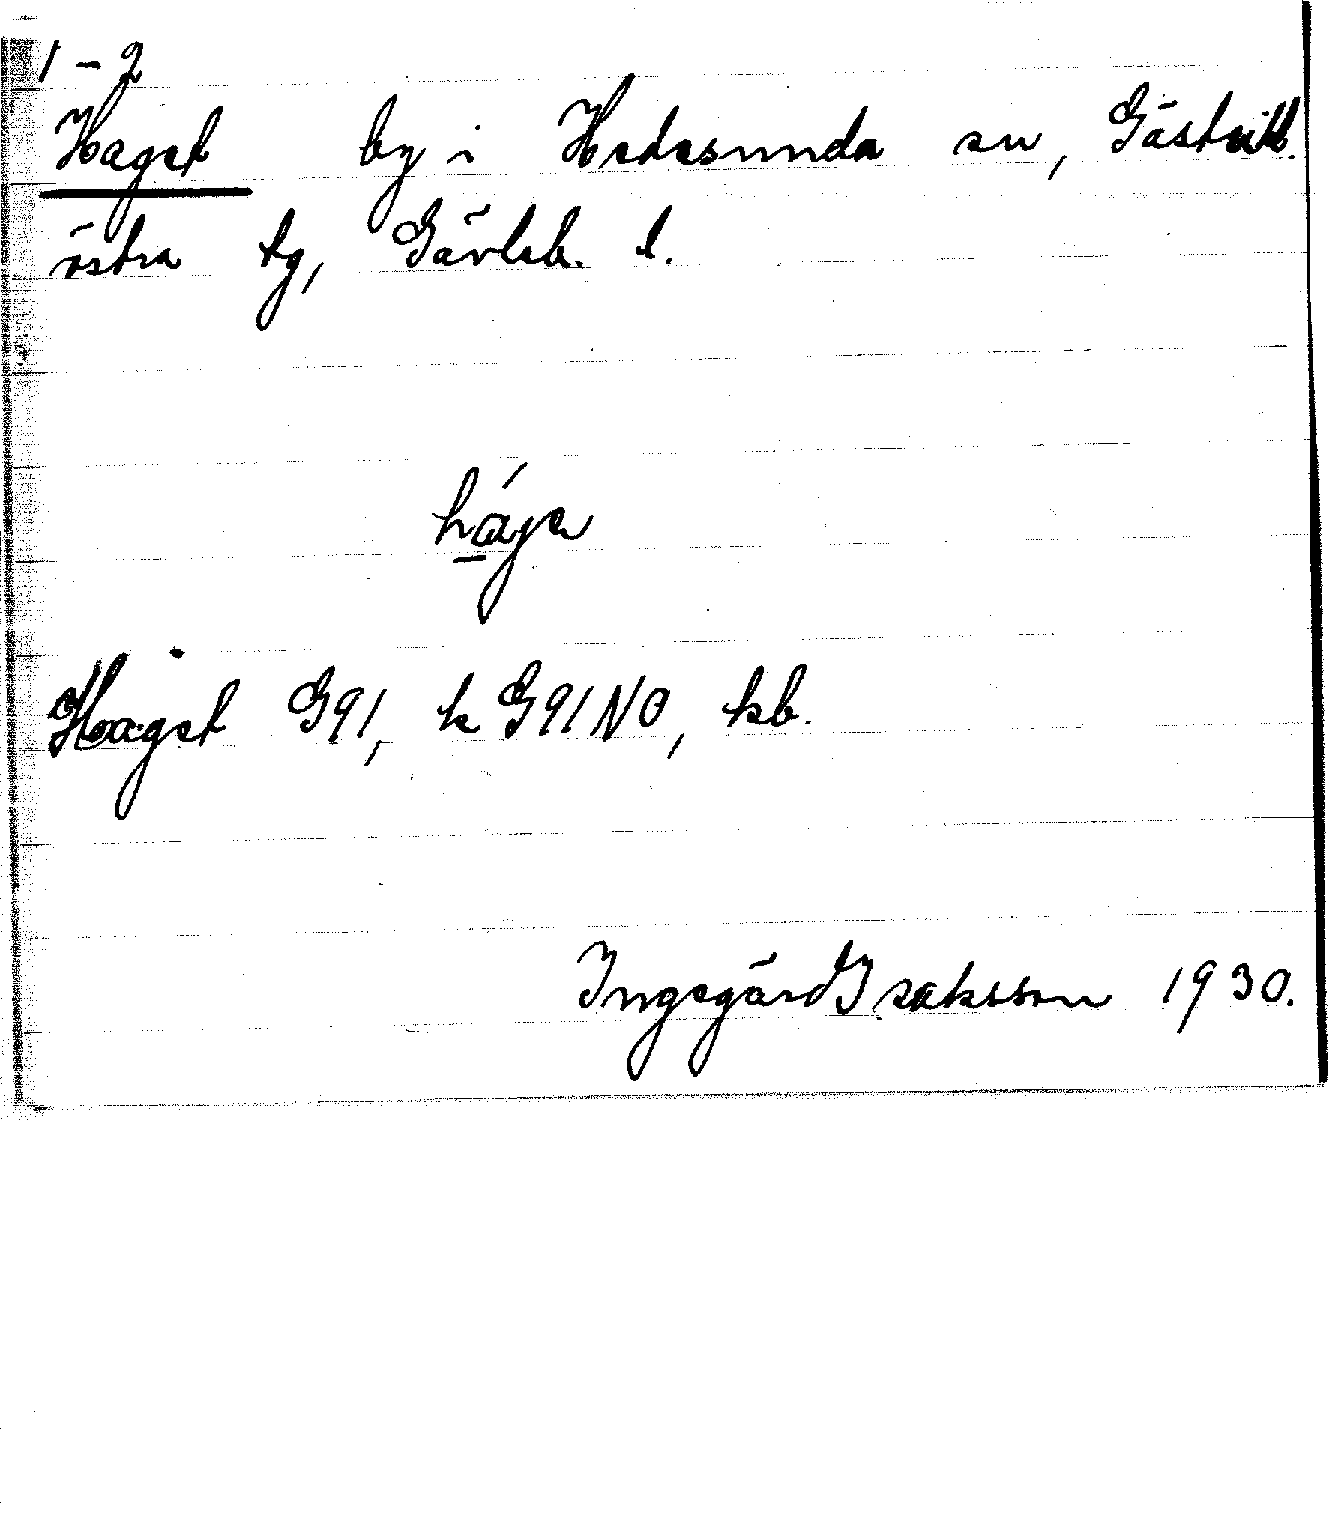 1-2
Haget by i Hedesunda sn, Gästrikl.
östra tg, Gävleb. l.
hája
Haget G91, k G91NO, kb.
Ingegärd Isaksson 1930.